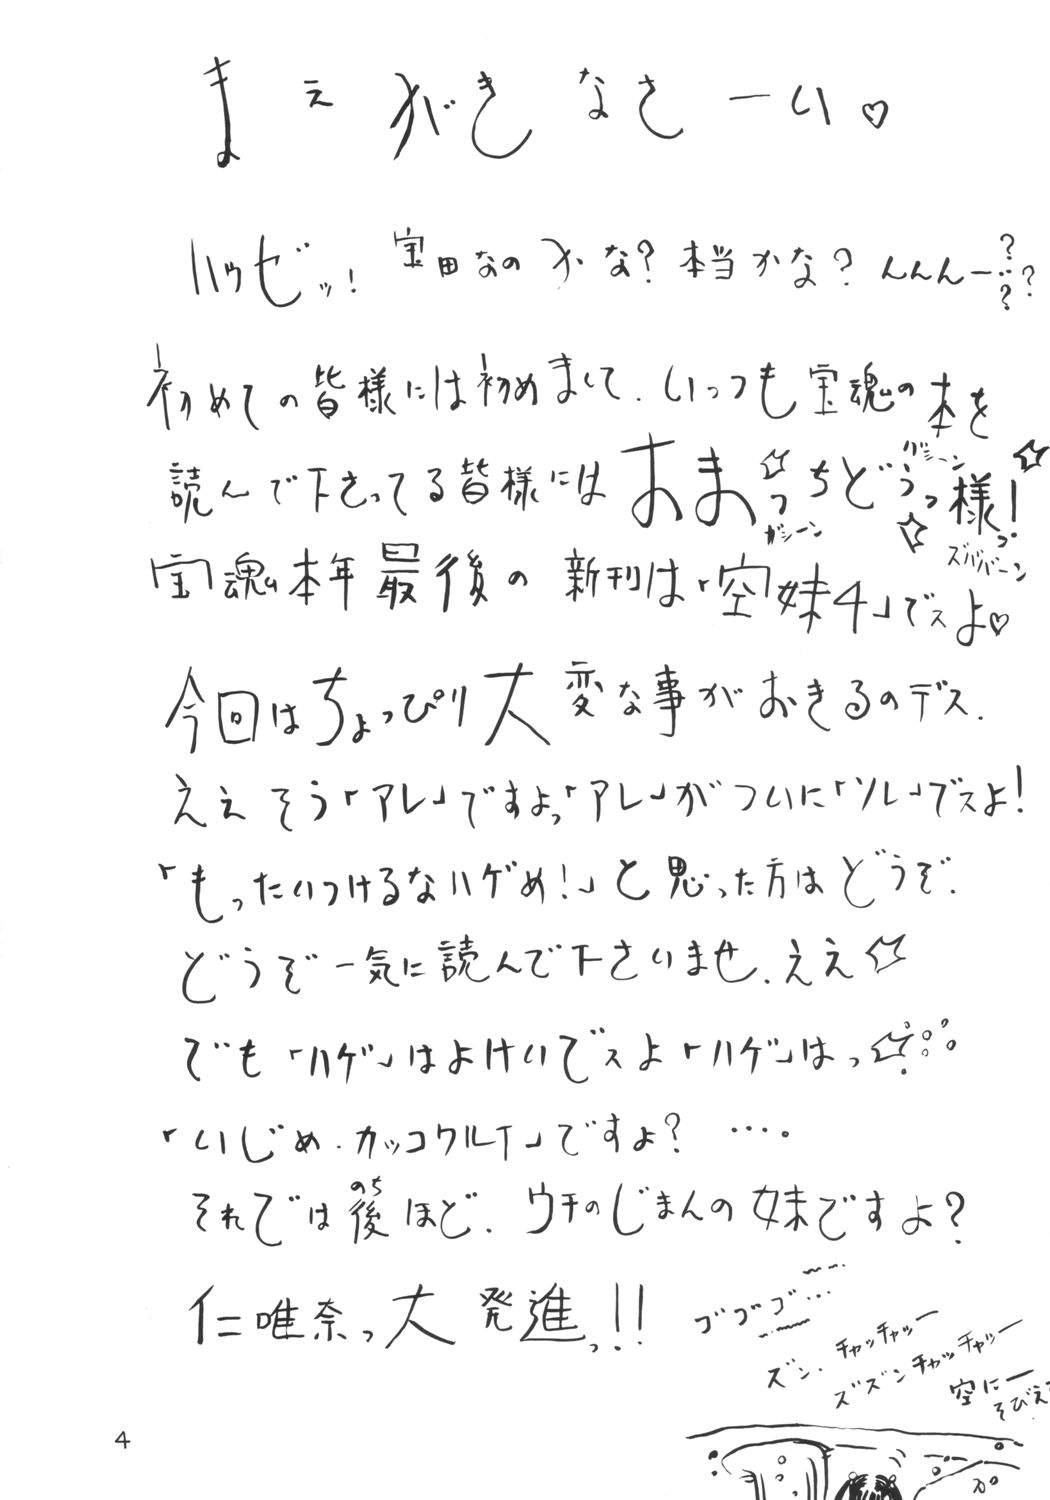 まえがきなさーい♡
ハゥゼッ! 宝田なのかな?本当かな?んんんー??
初めての皆様には初めまして.いっつも宝魂の本を
読んで下さってる皆様にはおまっちどうっ様っ!
ガシーン
ガシーン
ズババーン
宝魂本年最後の新刊は「空妹4」でスよ♡
今回はちょっぴり大変な事がおきるのデス.
ええそう「アレ」ですよっ「アレ」がついに「ソレ」でスよ!
「もったいつけるなハゲめ!」と思った方はどうぞ.
どうぞ一気に読んで下さいませ.ええ☆
でも「ハゲ」はよけいでスよ「ハゲ」はっ☆
「いじめ.カッコワルイ」ですょ? ….
それでは後ほど.ウチのじまんの妹ですよ?
のち
仁唯奈っ大発進っ!!
ゴゴゴ…
ズン.チャッチャッー
ズズンチャッチャッー
空にー
そびえ
4